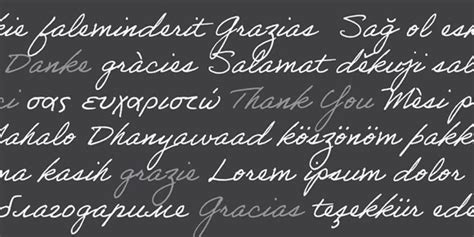 kie faleminderit Grazias Sağ ol esk
Danke gràcies Salamat dĕkuji sal
ci σας ευχαριστώ Thank You Mèsi p
Mahalo Dhanyawaad köszönöm þakk
ma kasih grazie Lorem ipsum dolor
благодариме Gracias teşekkür ede